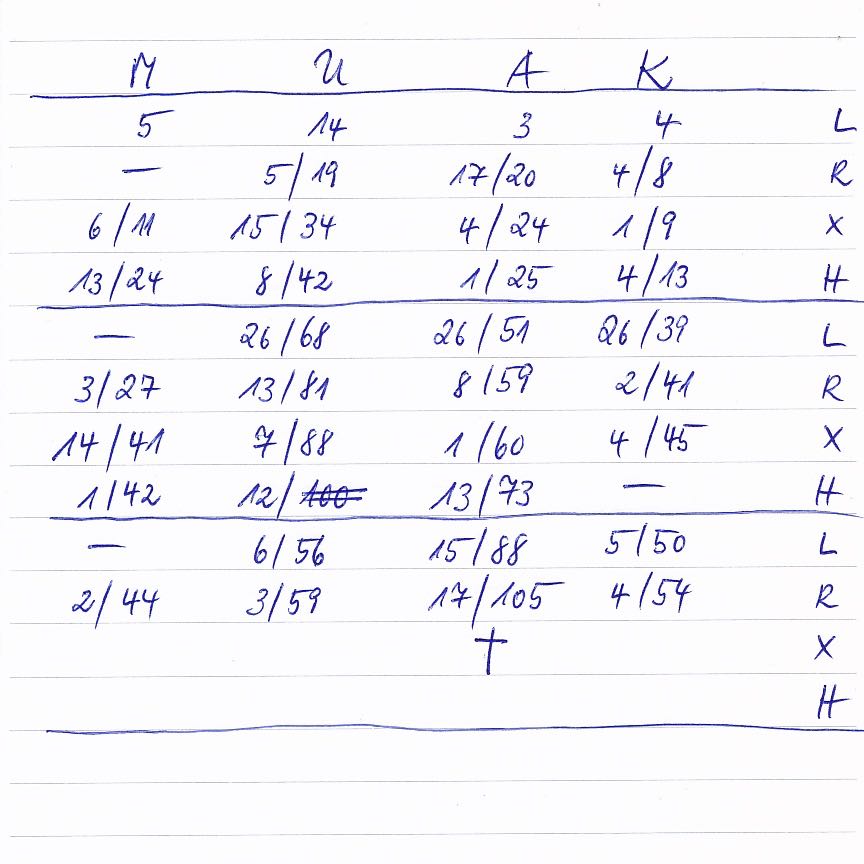 M U A K
5 14 3 4 L
— 5/19 17/20 4/8 R
6/11 15/34 4/24 1/9 X
13/24 8/42 1/25 4/13 H
— 26/68 26/51 26/39 L
3/27 13/81 8/59 2/41 R
14/41 7/88 1/60 4/45 X
1/42 12/100 13/73 — H
— 6/56 15/88 5/50 L
2/44 3/59 17/105 4/54 R
† X
H